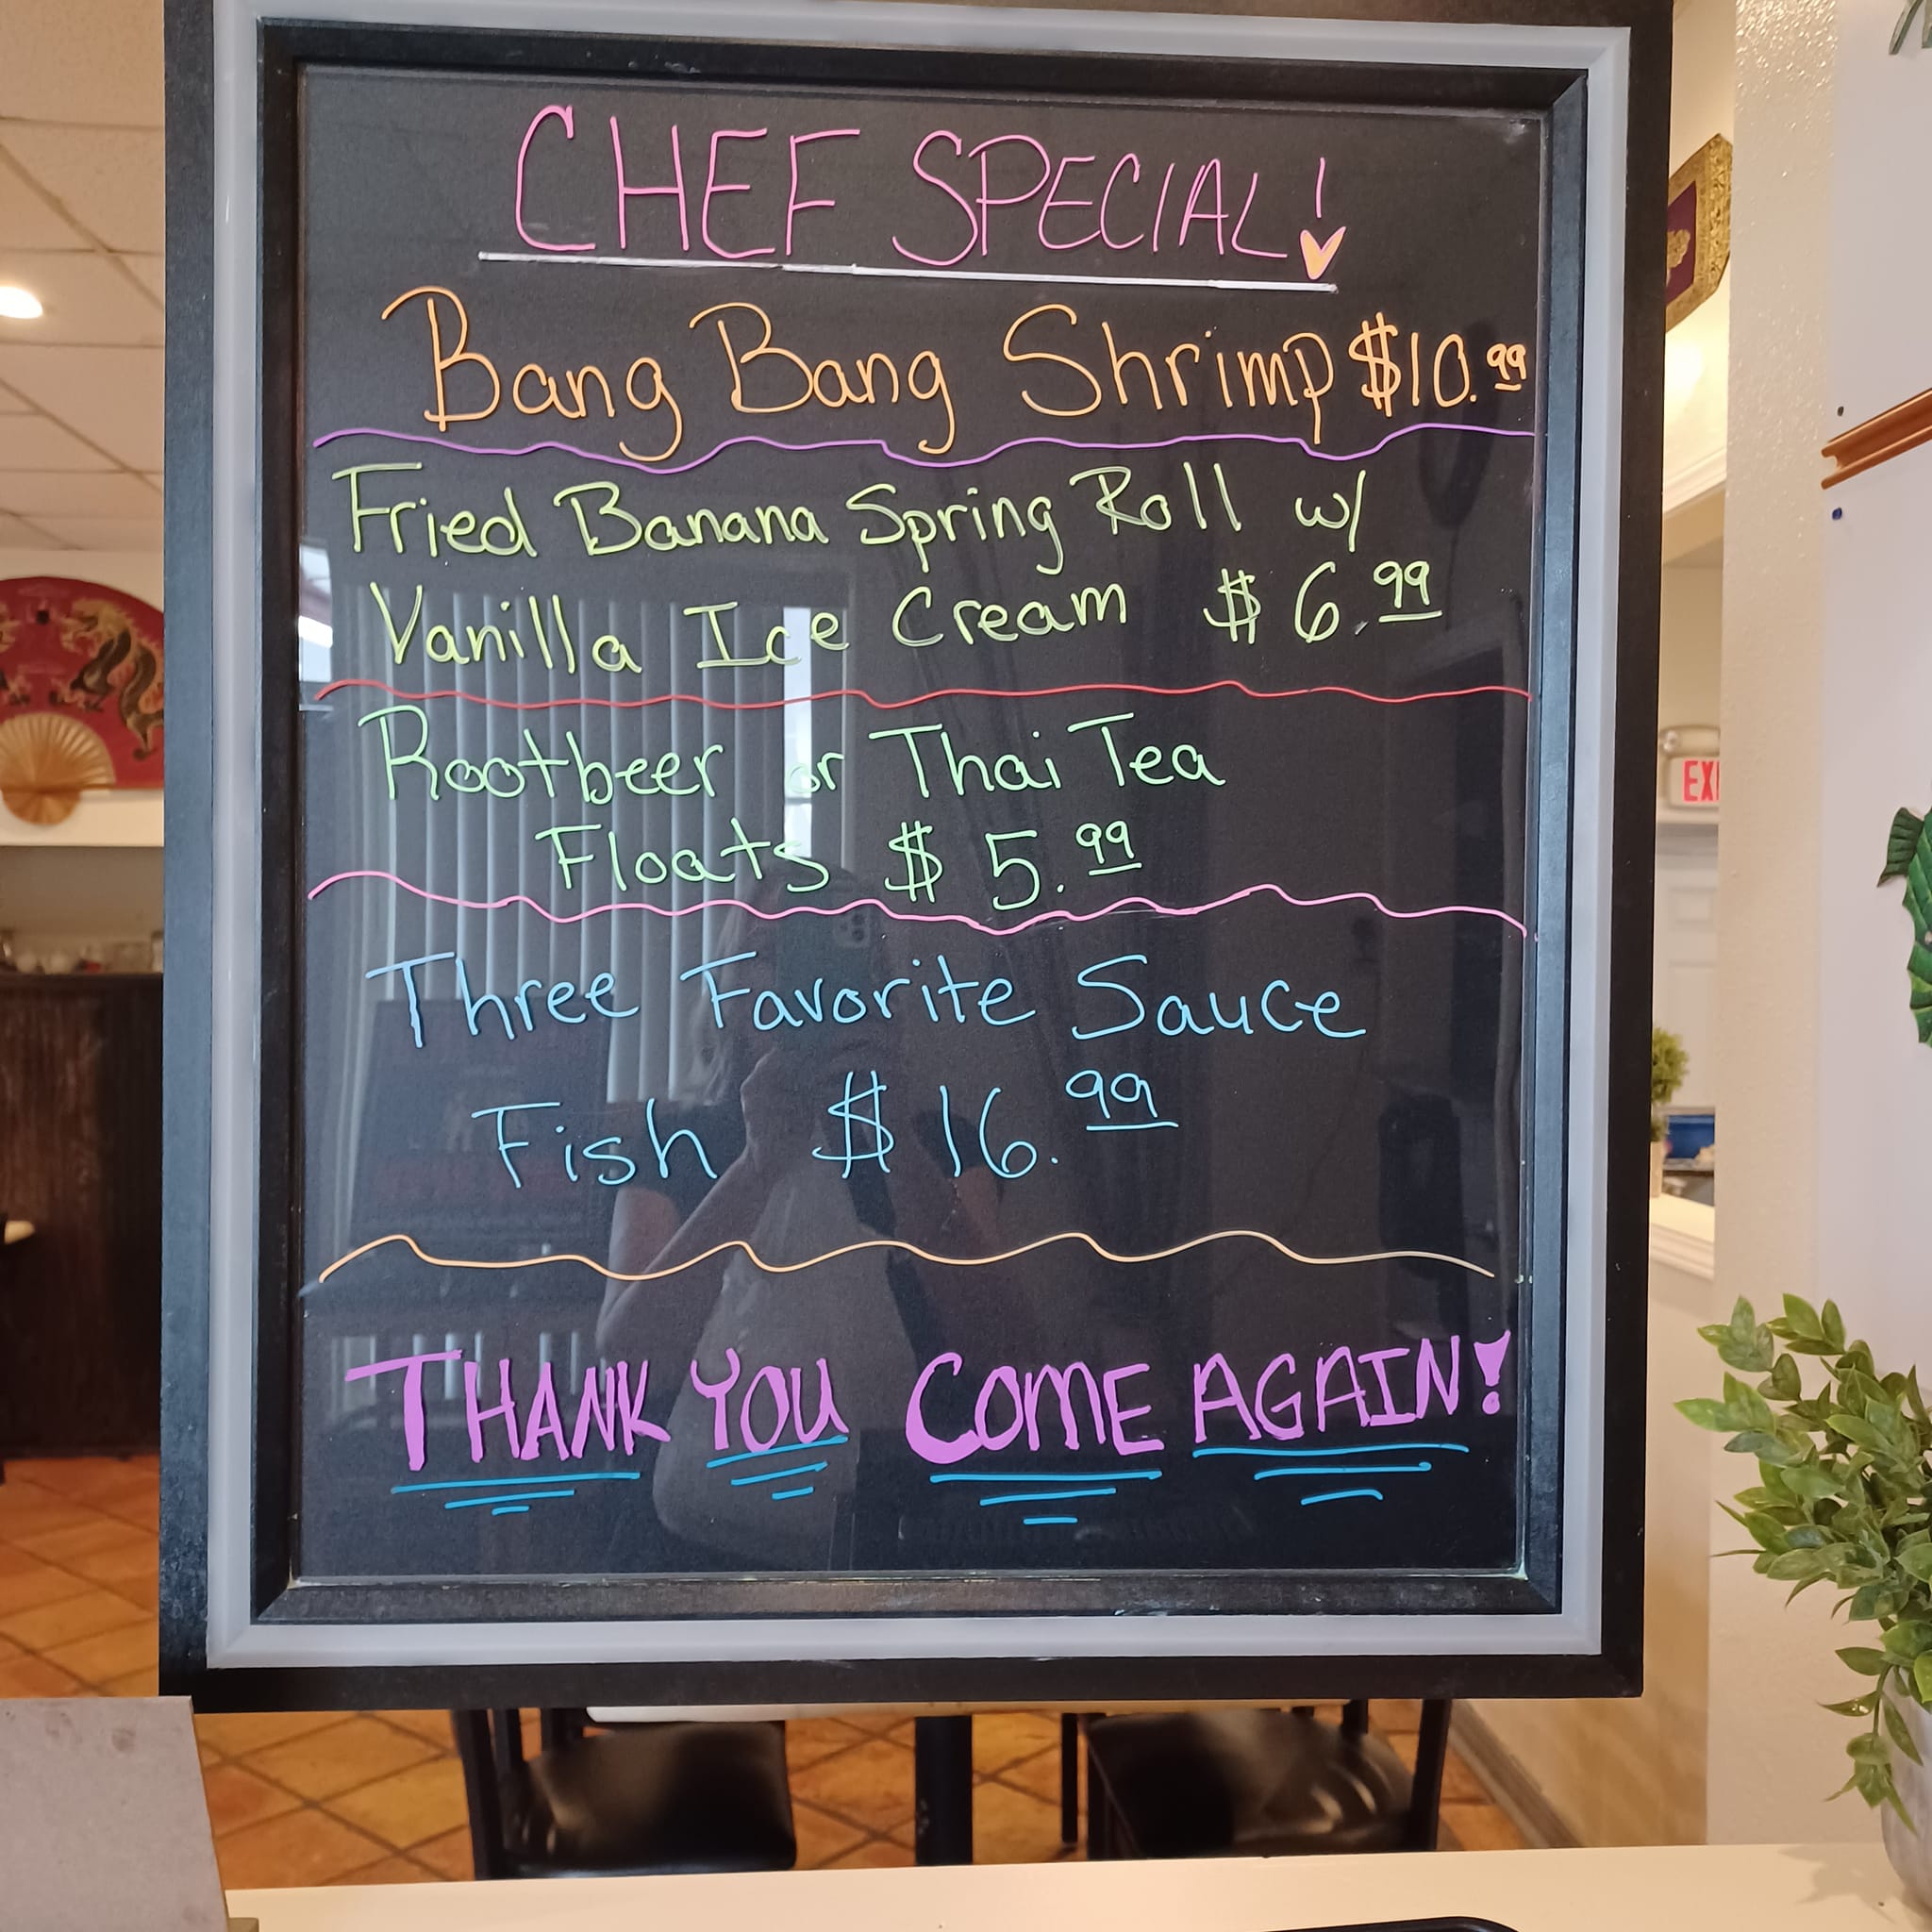 CHEF SPECIAL!
Bang Bang Shrimp $10.99
Fried Banana Spring Roll w/
Vanilla Ice Cream $6.99
Rootbeer or Thai Tea
Floats $5.99
Three Favorite Sauce
Fish $16.99
THANK YOU COME AGAIN!